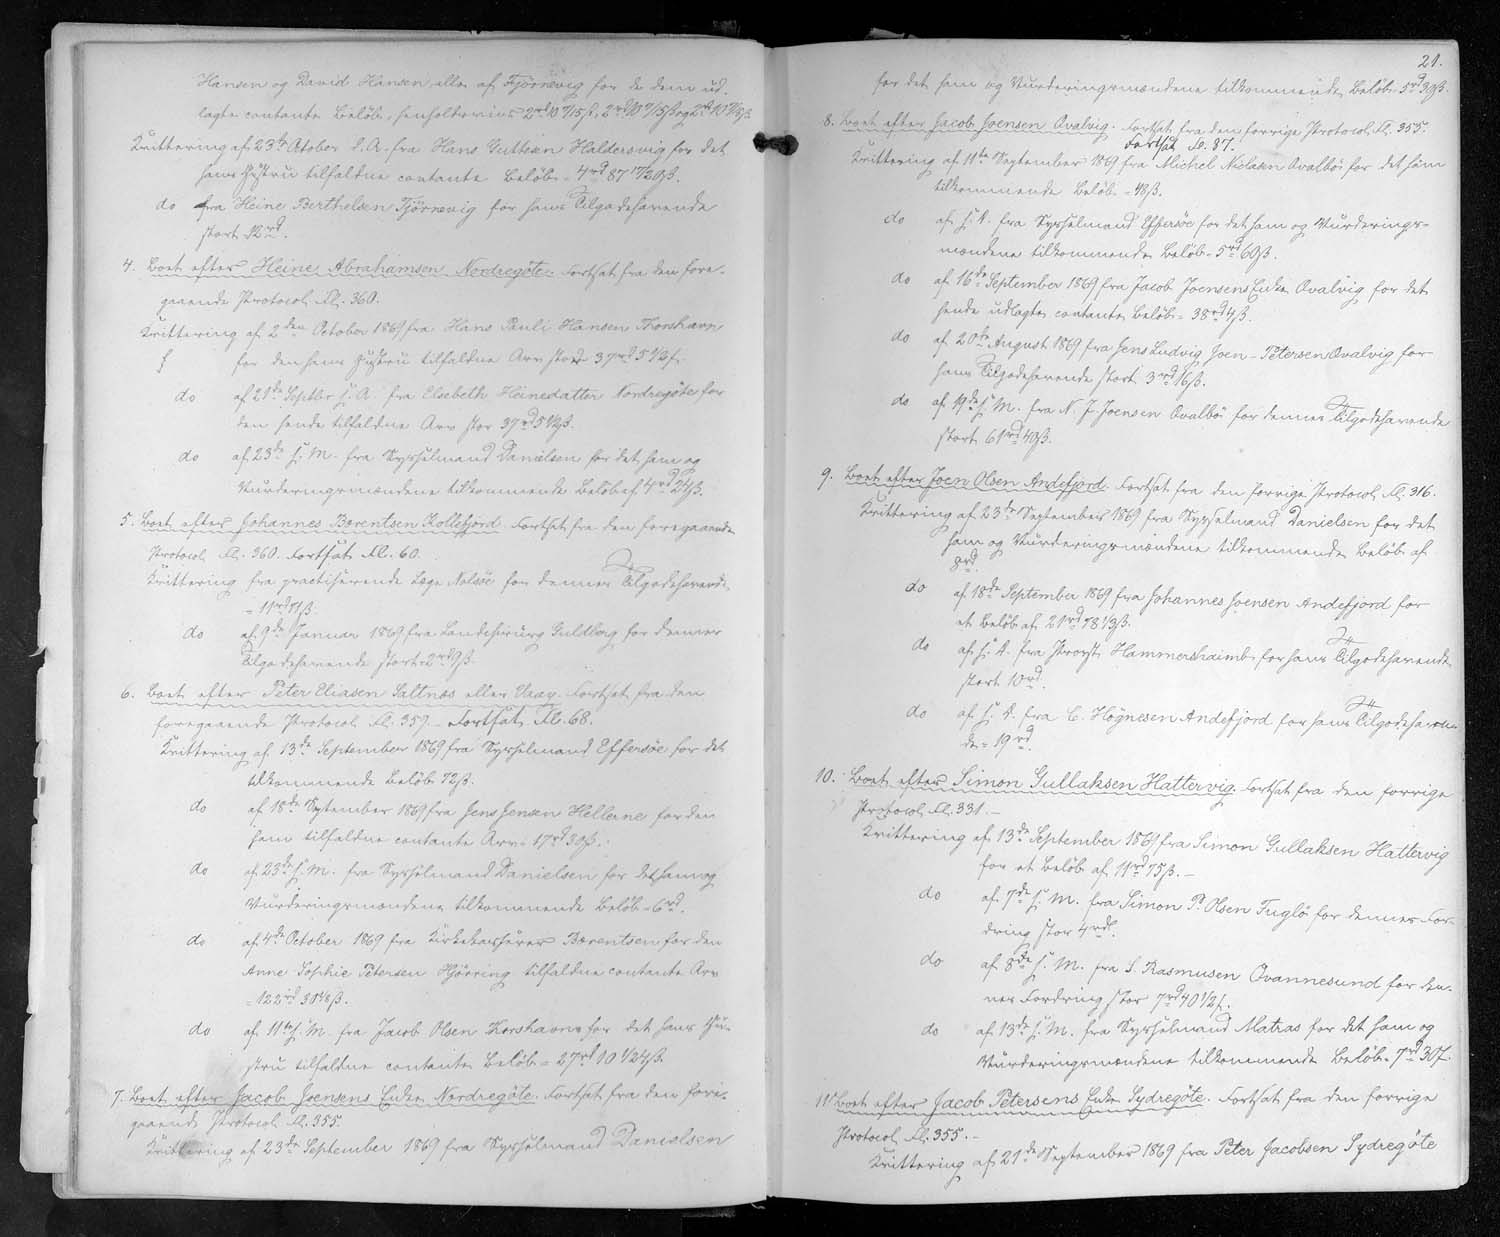 Hansen og David Hansen alle af Tjörnevig for de dem ud-
lagte contante Beløb, henholdsviis 2rd
Kvittering af 23de Otober s. A. fra Hans Guttesen Haldersvig for det
hans Hustru tilfaldne contante Beløb = 4rd 87
do fra Heine Berthelsen Tjörnevig for hans Tilgodehavende
stort 12rd.
4. Boet efter Heine Abrahamsen Nordregöte. Fortsat fra den fore-
gaaende Protocol Fol. 360.
Kvittering af 2den October 1869 fra Hans Pauli Hansen Thorshavn
for den hans Hustru tilfaldne Arv stor 37rd 5 1/2 ß.
do af 21de Septbr s. A. fra Elsebeth Heinesdatter Nordregöte for
den hende tilfaldne Arv stor 37rd 5 1/2 ß.
do af 23de s. M. fra Sysselmand Danielsen for det ham og
Vurderingsmændene tilkommende Beløb af 4rd 24ß.
5. Boet efter Johannes Barentsen Kollefjord. Fortsat fra den foregaaende
Protocol Fol. 360. Fortsat Fol. 60.
Kvittering fra practiserende Læge Nolsöe for dennes Tilgodehavende
= 11rd 11ß.
do af 9de Januar 1869 fra Landchirurg Guldberg for dennes
Tilgodehavende stort 2rd 9ß.
6. Boet efter Peter Eliasen Saltnæs eller Vaag. Fortsat fra den
foregaaende Protocol Fol. 357. – Fortsat Fol. 68.
Kvittering af 13de September 1869 fra Sysselmand Effersöe for det
tilkommende Beløb 72ß.
do af 18de September 1869 fra Jens Jensen Hellerne for den
ham tilfaldne contante Arv = 17rd 30ß.
do af 23de s. M. fra Sysselmand Danielsen for det ham og
Vurderingsmændene tilkommende Beløb = 6rd.
do af 4de October 1869 fra Kirkekasserer Barentsen for den
Anne Sophie Petersen Hjörring tilfaldne contante Arv
= 122rd
do af 11te s. M. fra Jacob Olsen Thorshavn for det hans Hu-
stru tilfaldne contante Beløb = 27rd 10 1/24ß
7. Boet efter Jacob Joensens Enke Nordregöte. Fortsat fra den fore-
gaaende Protocol Fol. 355.
Kvittering af 23de September 1869 fra Sysselmand Danielsen
21.
for det ham og Vurderingsmændene tilkommende Beløb = 5rd 39ß.
8. Boet efter Jacob Joensen Qvalvig. Fortsat fra den forrige Protocol Fol. 355.
Fortsat Fol. 87.
Kvittering af 11te September 1869 fra Michel Niclasen Qvalbö for det ham
tilkommende Beløb = 48ß.
do af s. D. fra Sysselmand Effersöe for det ham og Vurderings-
mændene tilkommende Beløb = 5rd 60ß.
do af 16de September 1869 fra Jacob Joensens Enke Qvalvig for det
hende udlagte contante Beløb = 38rd 4ß.
do af 20de August 1869 fra Jens Ludvig Joen-Petersen Qvalvig for
hans Tilgodehavende stort 3rd 16ß.
do af 19de s. M. fra N. J. Joensen Qvalbö for dennes Tilgodehavende
stort 61rd 40ß.
9. Boet efter Joen Olsen Andefjord. Fortsat fra den forrige Protocol Fol. 316.
Kvittering af 23de September 1869 fra Sysselmand Danielsen for det
ham og Vurderingsmændene tilkommende Beløb af
8rd.
do af 18de September 1869 fra Johannes Joensen Andefjord for
et Beløb af 21rd 78 1/3ß.
do af s. D. fra Provst Hammershaimb for hans Tilgodehavende
stort 10rd.
do af s. D. fra C. Högnesen Andefjord for hans Tilgodehaven-
de = 19rd.
10. Boet efter Simon Gullaksen Hattervig. Fortsat fra den forrige
Protocol Fol. 331. –
Kvittering af 13de September 1869 fra Simon Gullaksen Hattervig
for et Beløb af 11rd 75ß. –
do af 7de s. M. fra Simon P. Olsen Fuglö for dennes For-
dring stor 4rd.
do af 8de s. M. fra S. Rasmusen Qvannesund for den-
nes Fordring stor 7rd 40 1/2ß.
do af 13de s. M. fra Sysselmand Matras for det ham og
Vurderingsmændene tilkommende Beløb = 7rd 30ß.
11. Boet efter Jacob Petersens Enke Sydregöte. Fortsat fra den forrige
Protocol Fol. 355. –
Kvittering af 21de September 1869 fra Peter Jacobsen Sydregöte